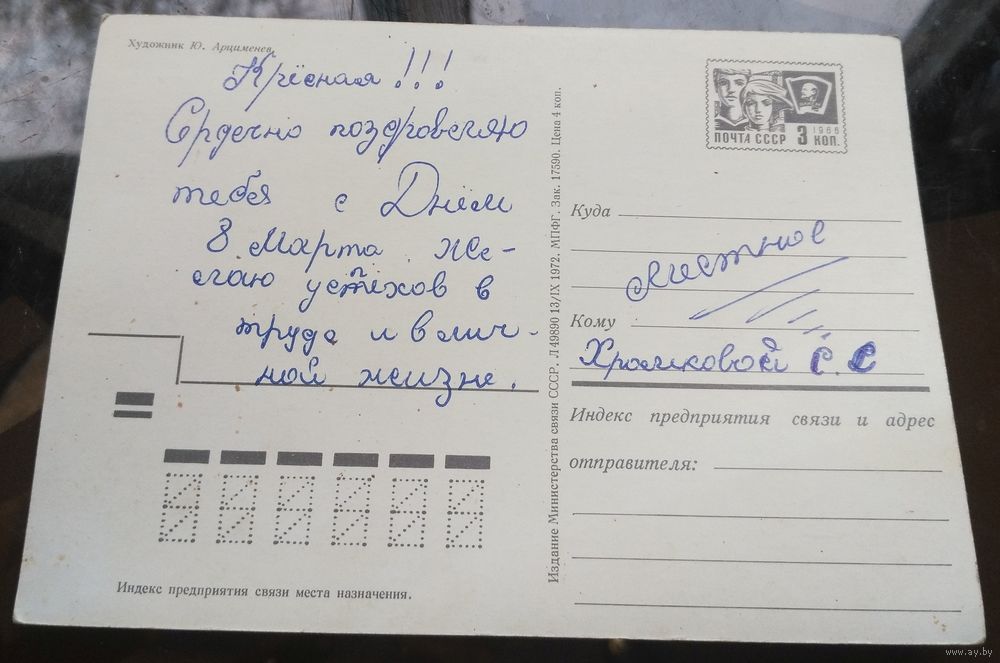 Художник Ю. Арцименев
Крёсная!!!
Срдечно поздровляю
тебя с Днём
8 Марта. Же-
лаю успехов в
труде и в лич-
ной жизне.
Индекс предприятия связи места назначения.
Издание Министерства связи СССР. Л 49890 13/IX 1972. МПФГ. Зак. 17590. Цена 4 коп.
ПОЧТА СССР 3 1966 КОП.
Куда
Местное
Кому
Хромковой С. С
Индекс предприятия связи и адрес
отправителя:
www.ay.by